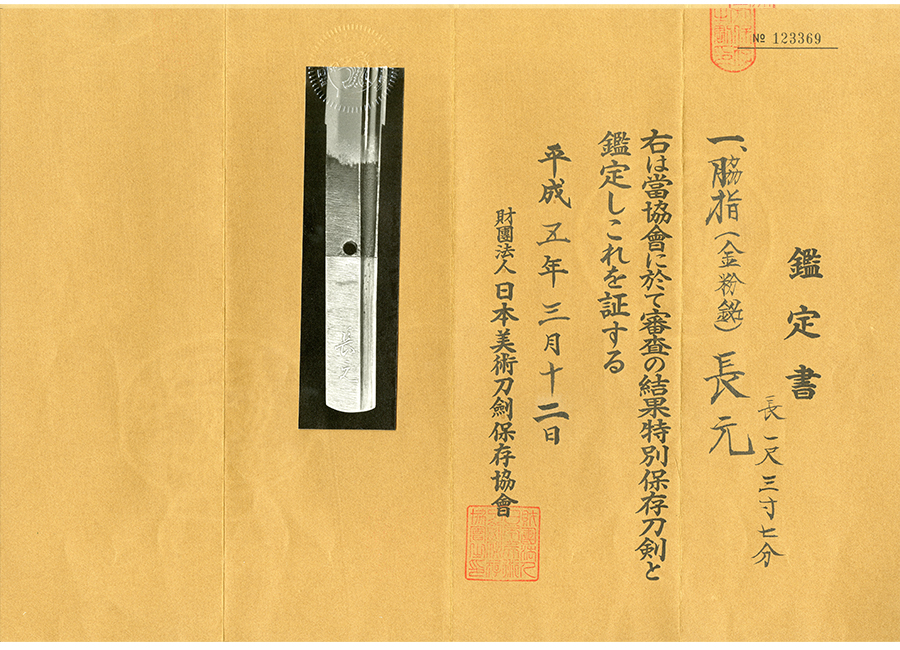 № 123369
鑑定書
一、脇指(金粉銘)長元
長一尺三寸七分
右は當協會に於て審査の結果特別保存刀剣と
鑑定しこれを証する
平成五年三月十二日
財團法人日本美術刀劍保存協會
長元